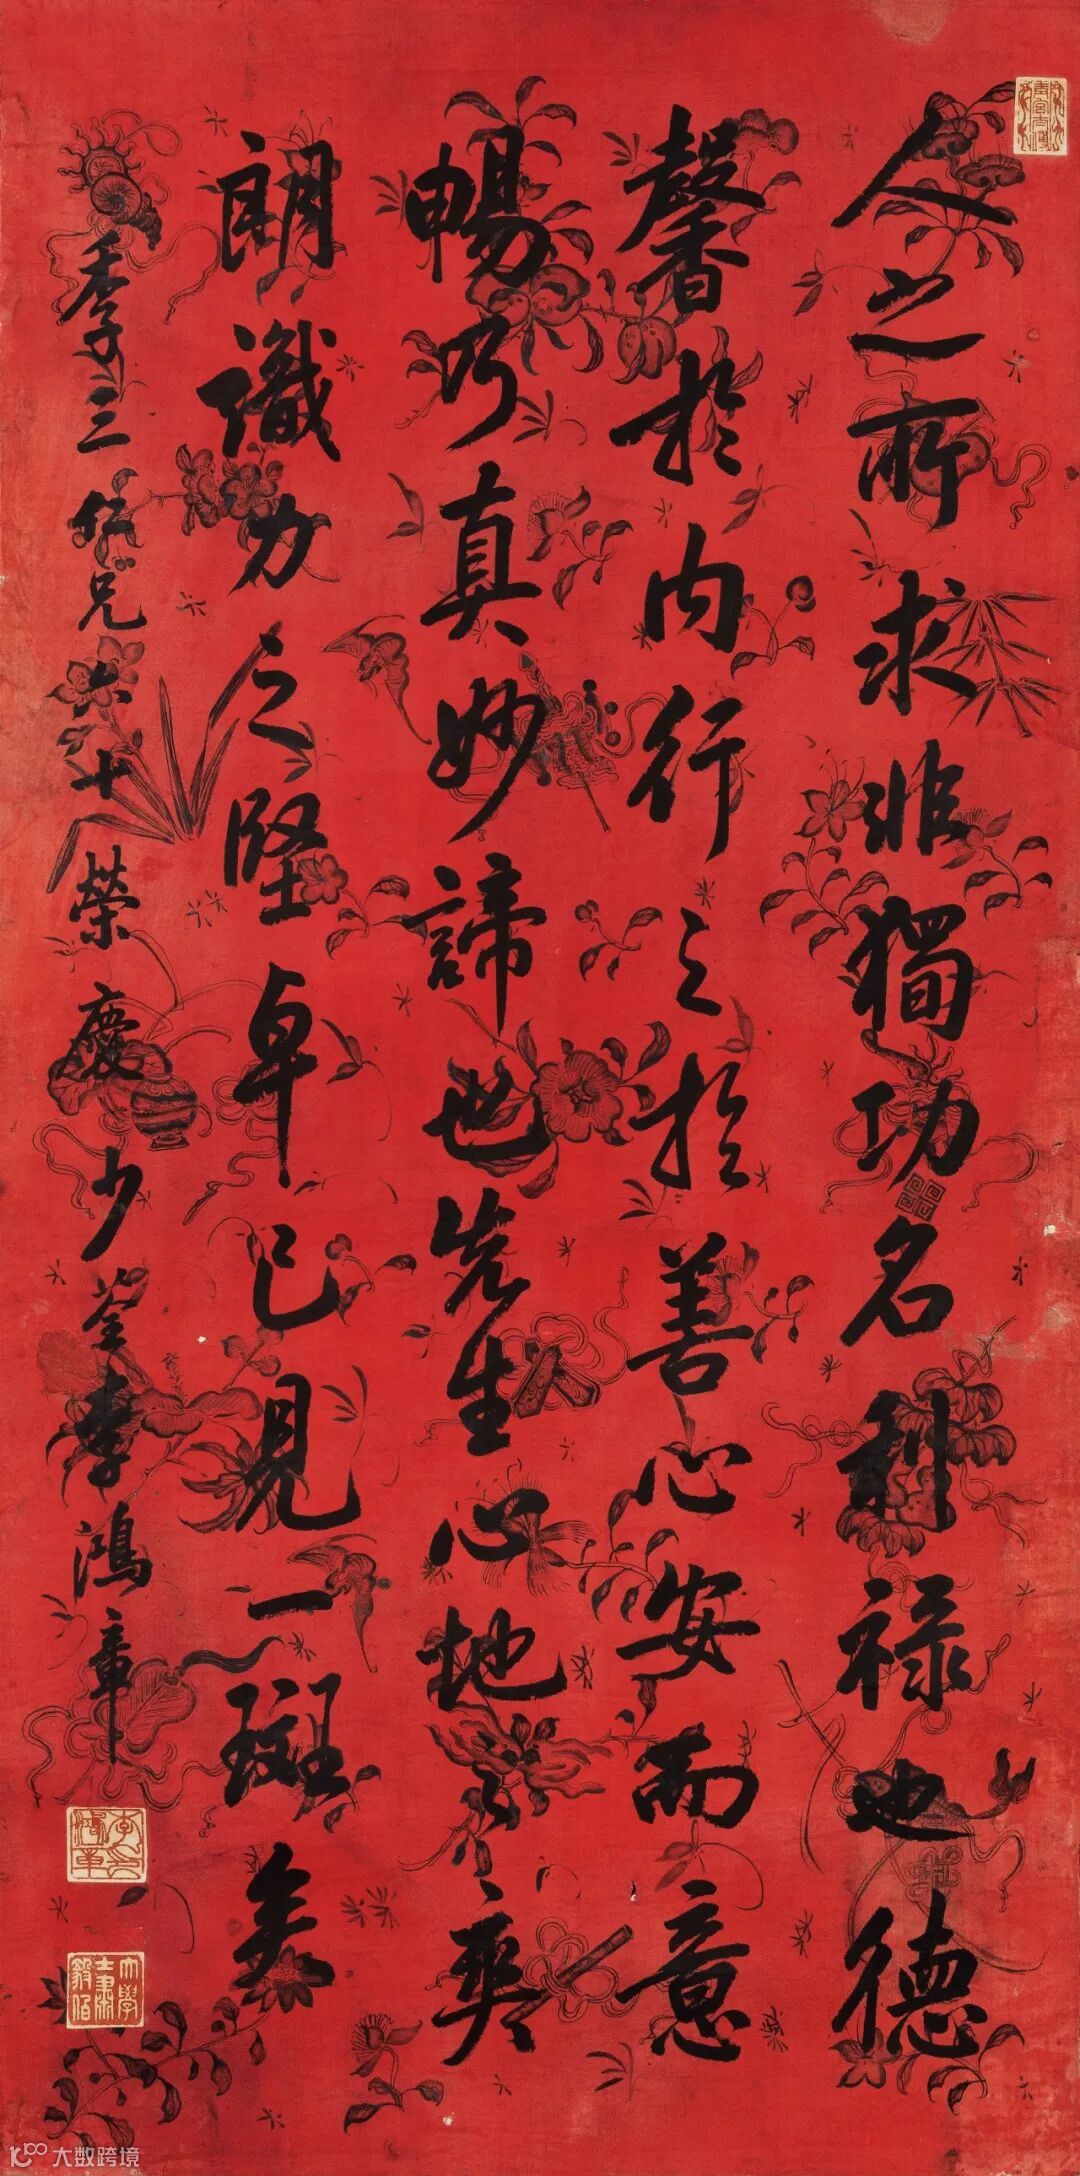 人之所求非獨功名利祿也德
馨於內行之於善心安而意
暢乃真妙諦也先生心地之爽
朗識力之堅卓已見一斑矣
季三仁兄六十榮慶少荃李鴻章
李鴻章印
大學士肅毅伯
大数跨境